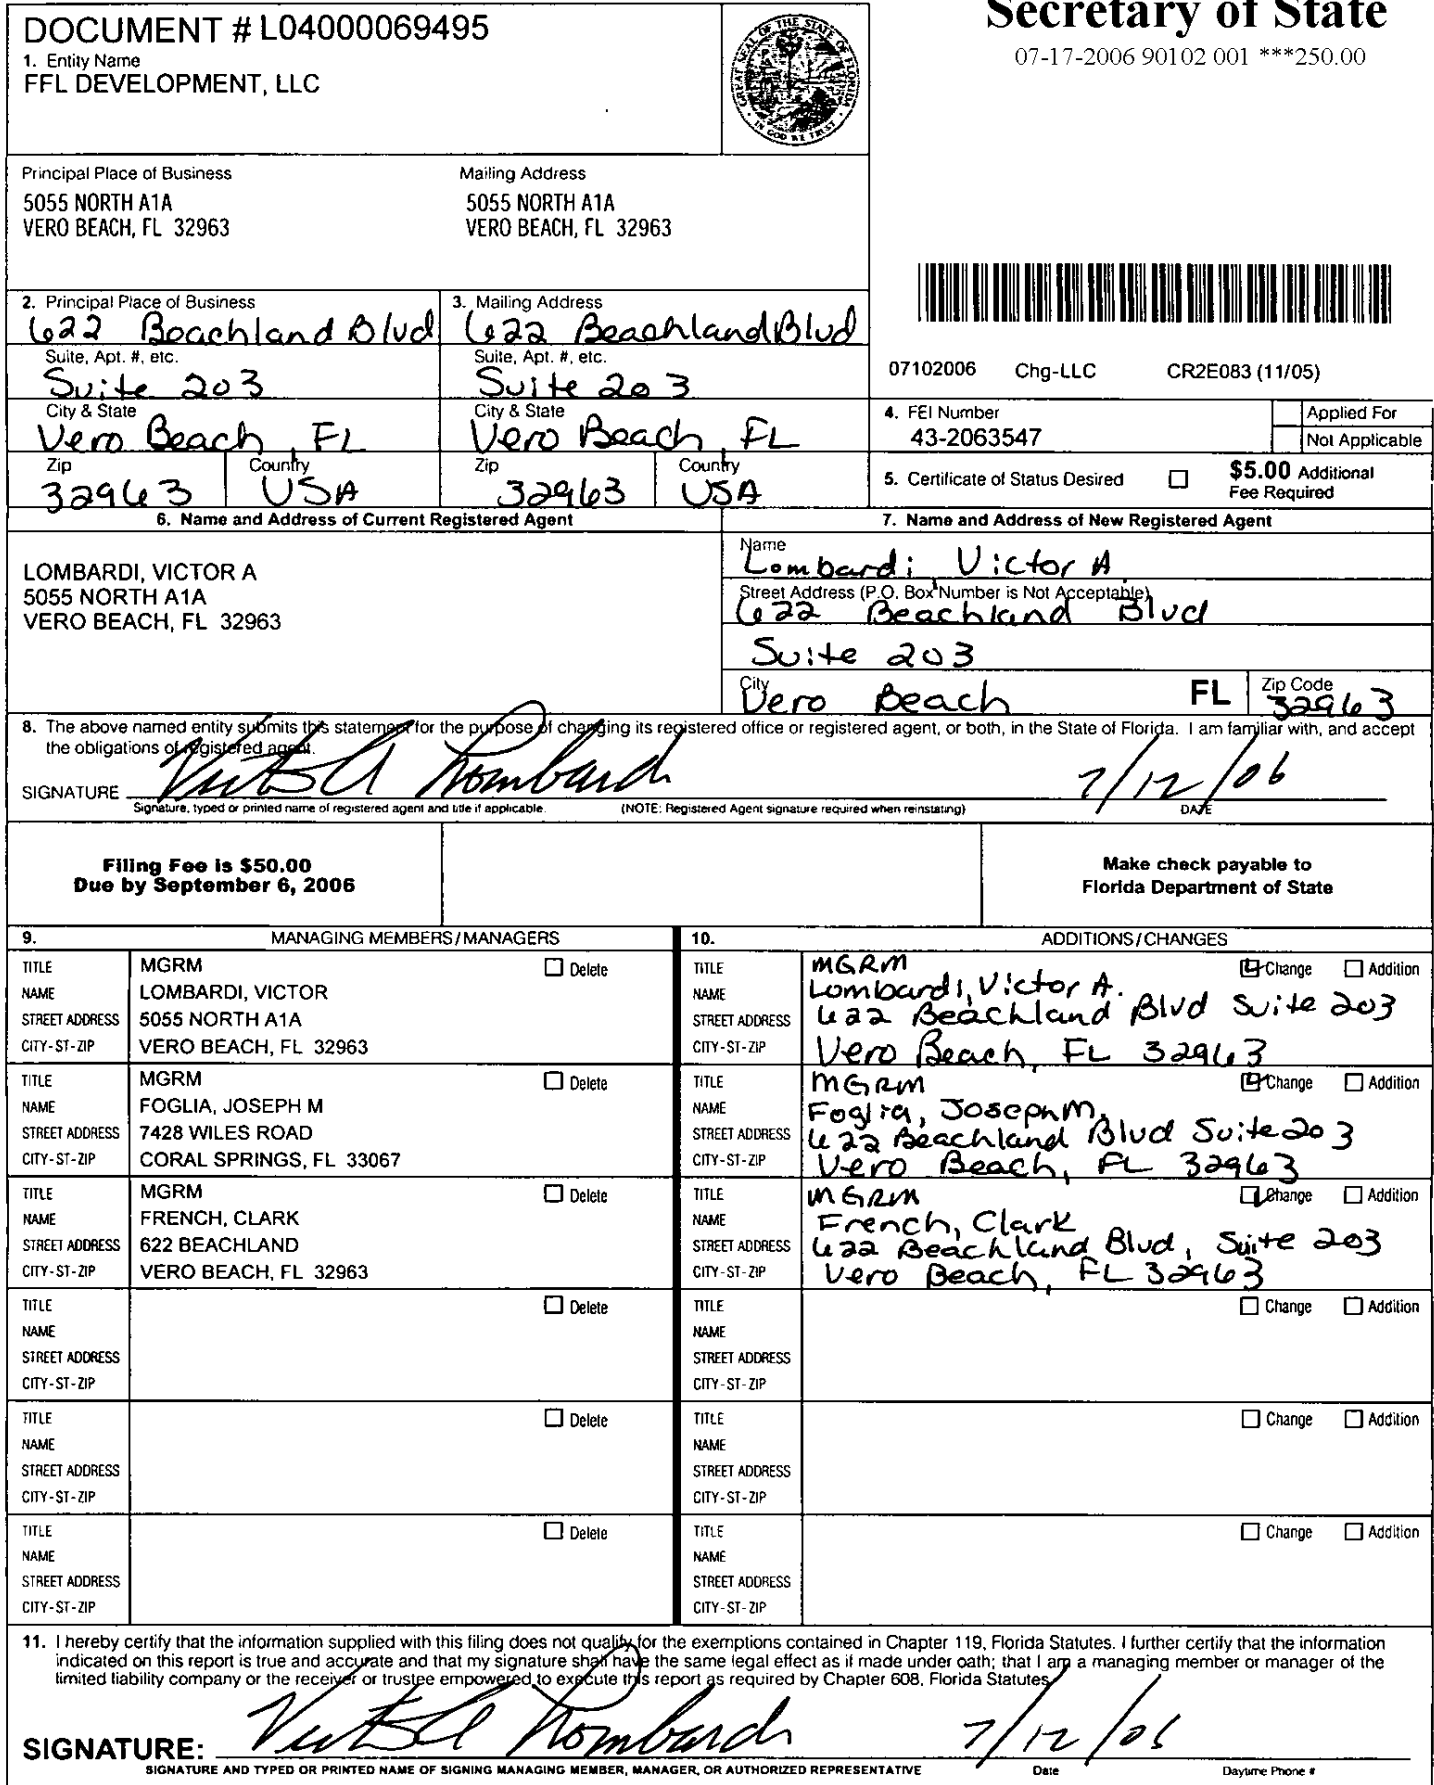 Secretary of State
07-17-2006 90102 001 ***250.00
DOCUMENT # L04000069495
1. Entity Name
FFL DEVELOPMENT, LLC
GREAT SEAL OF THE STATE OF FLORIDA
IN GOD WE TRUST
Principal Place of Business
5055 NORTH A1A
VERO BEACH, FL 32963
Mailing Address
5055 NORTH A1A
VERO BEACH, FL 32963
2. Principal Place of Business
622 Beachland Blvd
Suite, Apt. #, etc.
Suite 203
City & State
Vero Beach, FL
Zip
32963
Country
USA
3. Mailing Address
622 Beachland Blvd
Suite, Apt. #, etc.
Suite 203
City & State
Vero Beach, FL
Zip
32963
Country
USA
07102006 Chg-LLC CR2E083 (11/05)
4. FEI Number
43-2063547
Applied For
Not Applicable
5. Certificate of Status Desired
$5.00 Additional
Fee Required
6. Name and Address of Current Registered Agent
LOMBARDI, VICTOR A
5055 NORTH A1A
VERO BEACH, FL 32963
7. Name and Address of New Registered Agent
Name
Lombardi Victor A.
Street Address (P.O. Box Number is Not Acceptable)
622 Beachland Blvd
Suite 203
City
Vero Beach FL
Zip Code
32963
8. The above named entity submits this statement for the purpose of changing its registered office or registered agent, or both, in the State of Florida. I am familiar with, and accept
the obligations of registered agent.
SIGNATURE Victor A Lombardi 7/12/06
Signature, typed or printed name of registered agent and title if applicable. (NOTE: Registered Agent signature required when reinstating) DATE
Filing Fee is $50.00
Due by September 6, 2006
Make check payable to
Florida Department of State
9. MANAGING MEMBERS/MANAGERS
10. ADDITIONS/CHANGES
TITLE MGRM Delete
NAME LOMBARDI, VICTOR
STREET ADDRESS 5055 NORTH A1A
CITY-ST-ZIP VERO BEACH, FL 32963
TITLE MGRM Change Addition
NAME Lombardi, Victor A.
STREET ADDRESS 622 Beachland Blvd Suite 203
CITY-ST-ZIP Vero Beach, FL 32963
TITLE MGRM Delete
NAME FOGLIA, JOSEPH M
STREET ADDRESS 7428 WILES ROAD
CITY-ST-ZIP CORAL SPRINGS, FL 33067
TITLE MGRM Change Addition
NAME Foglia, Joseph M.
STREET ADDRESS 622 Beachland Blvd Suite 203
CITY-ST-ZIP Vero Beach, FL 32963
TITLE MGRM Delete
NAME FRENCH, CLARK
STREET ADDRESS 622 BEACHLAND
CITY-ST-ZIP VERO BEACH, FL 32963
TITLE MGRM Change Addition
NAME French, Clark
STREET ADDRESS 622 Beachland Blvd, Suite 203
CITY-ST-ZIP Vero Beach, FL 32963
TITLE Delete
NAME
STREET ADDRESS
CITY-ST-ZIP
TITLE Change Addition
NAME
STREET ADDRESS
CITY-ST-ZIP
TITLE Delete
NAME
STREET ADDRESS
CITY-ST-ZIP
TITLE Change Addition
NAME
STREET ADDRESS
CITY-ST-ZIP
TITLE Delete
NAME
STREET ADDRESS
CITY-ST-ZIP
TITLE Change Addition
NAME
STREET ADDRESS
CITY-ST-ZIP
11. I hereby certify that the information supplied with this filing does not qualify for the exemptions contained in Chapter 119, Florida Statutes. I further certify that the information
indicated on this report is true and accurate and that my signature shall have the same legal effect as if made under oath; that I am a managing member or manager of the
limited liability company or the receiver or trustee empowered to execute this report as required by Chapter 608, Florida Statutes.
SIGNATURE: Victor A Lombardi 7/12/06
SIGNATURE AND TYPED OR PRINTED NAME OF SIGNING MANAGING MEMBER, MANAGER, OR AUTHORIZED REPRESENTATIVE Date Daytime Phone #